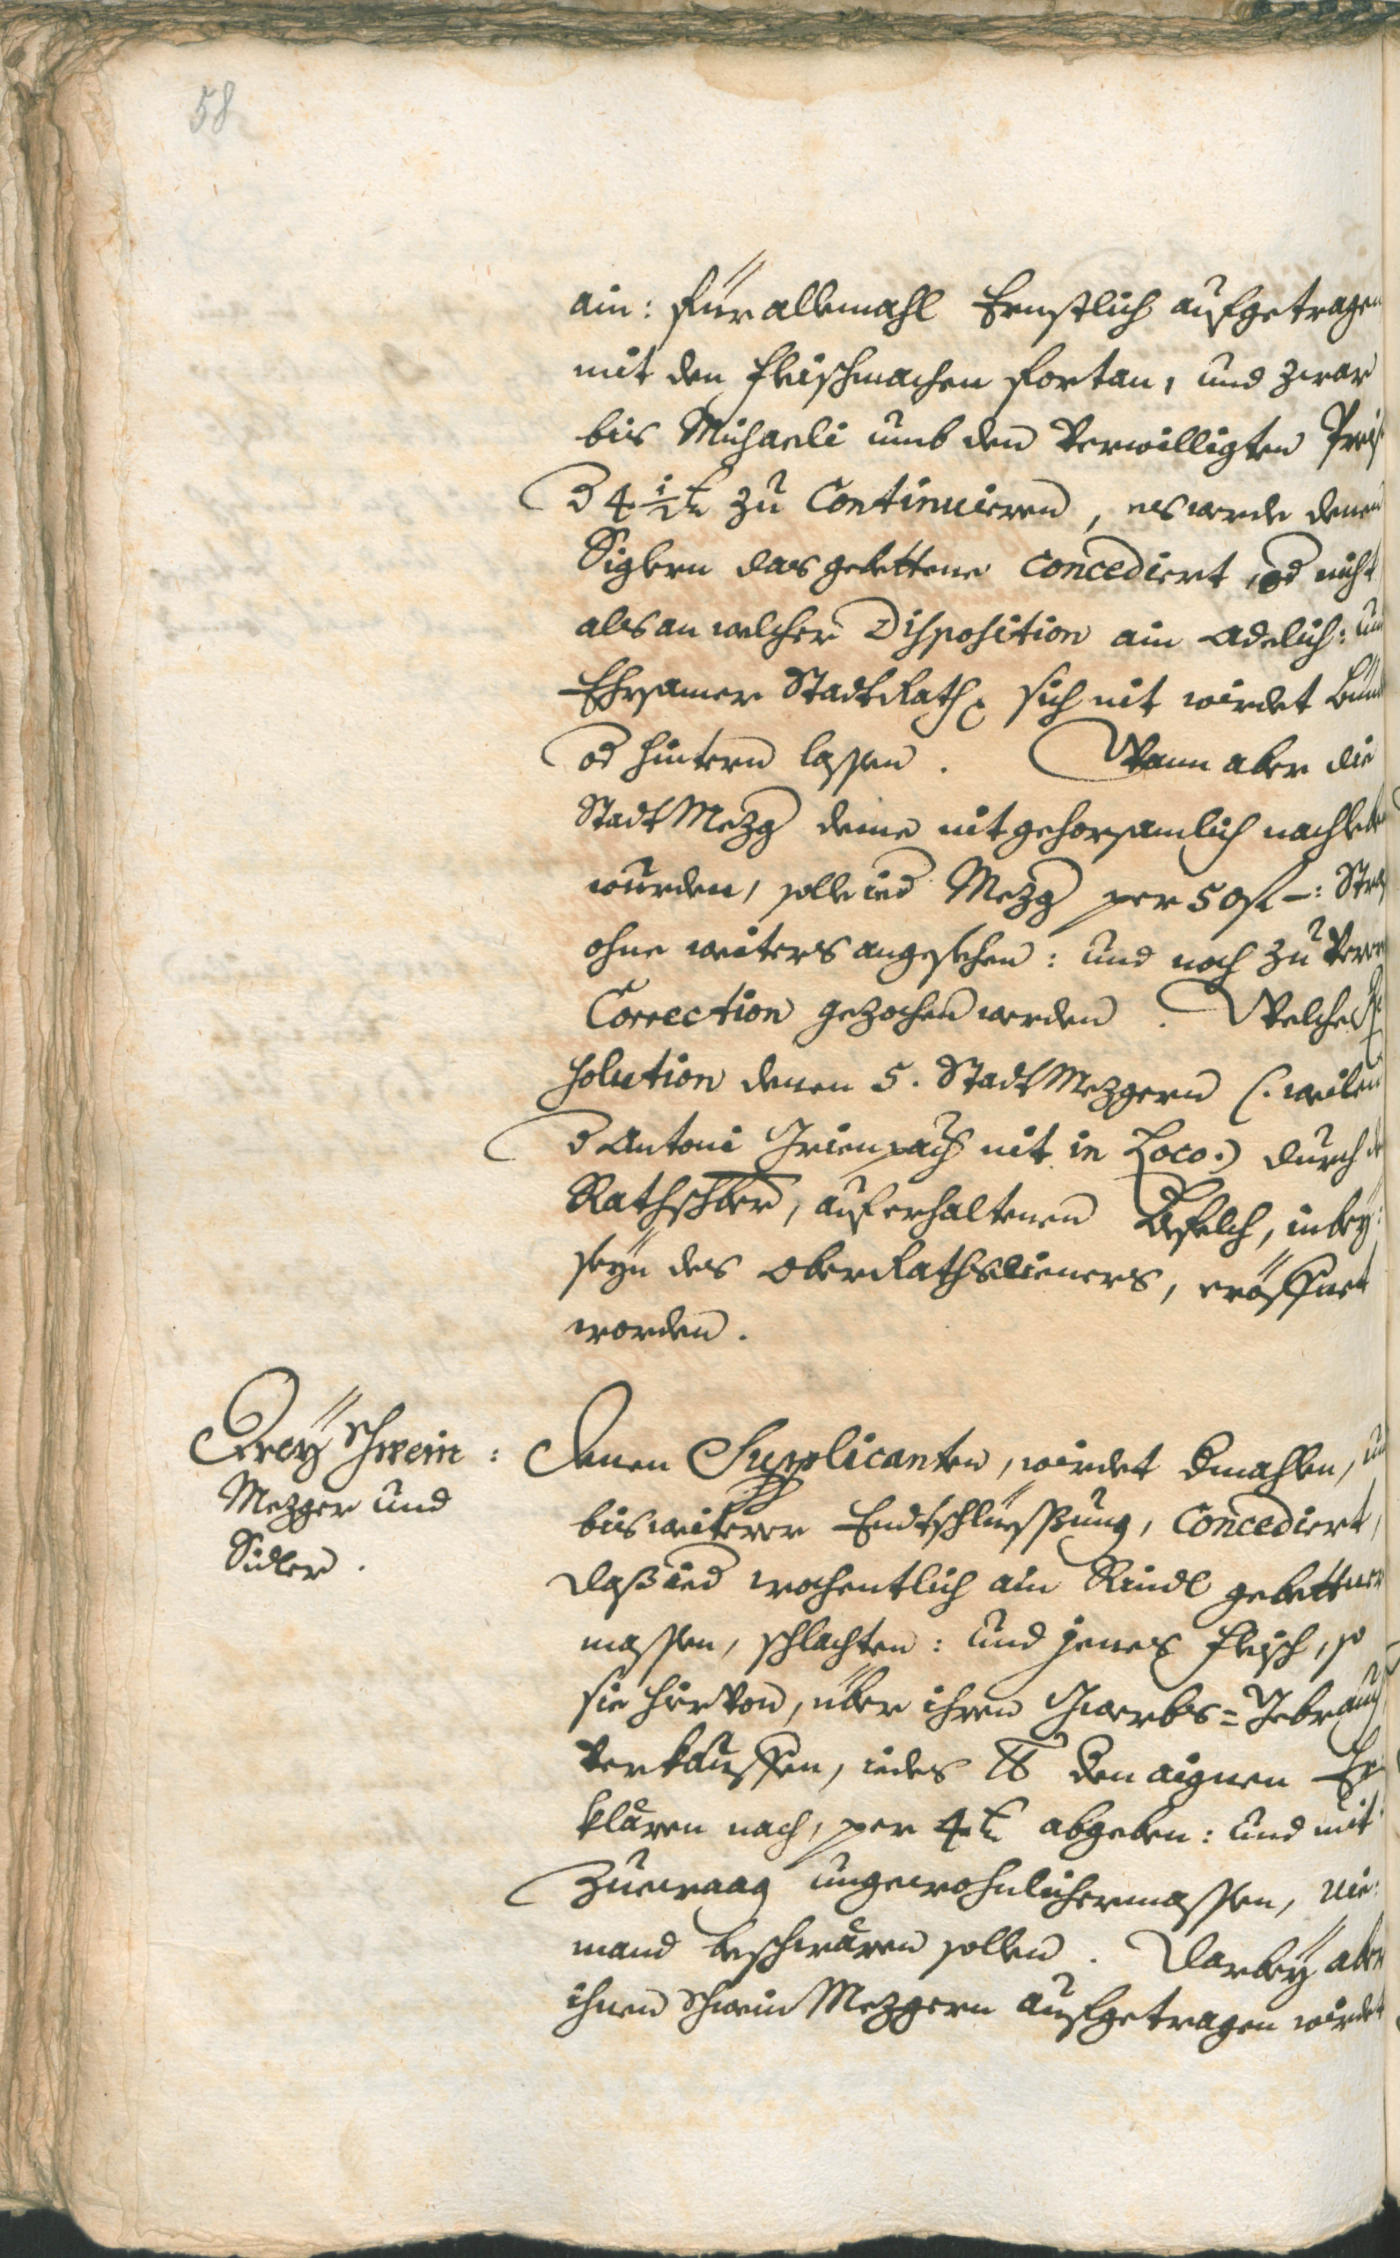 58
ain: für allemahl Ernstlich aufgetragen
mit den fleischmachen fortan, und zwar
bis Michaeli umb den verwilligten Preiß
d 4 1/2 kr zu Continuieren, es werde denen
Siglern das gebettene concediert, od nicht
als an welcher Disposition ain Adelich: und
Ehrsamer StadtRath sich nit wirdet
od hintern lassen. Wann aber die
StadtMezg deme nit gehorsamblich nachleben
wurden, solle ied Mezg per 50 fl -: Straf
ohne weiters angesehen: und noch zu
Correction gezochen werden. Welche Re
solution denen 5. StadtMezgern (: weilen
d Antoni Grienpach nit in Loco:) durch den
Rathschbern, auf erhaltenen Befelch, in bey:
seyn des OberRathsdieners, eröffnet
worden.
Drey Schwein:
Mezger und
Sidler.
Denen Supplicanten, wirdet dmahlen, und
bis weiterer Endtschliessung, Concediert,
daß ied wochentlich ain Rindl gebettner
massen, schlachten: und jenes fleisch, so
sie hiervon, über ihren Gwerbs=Gebrauch
verkauffen, iedes ℔ den aignen Er
klären nach, per 4 kr abgeben: und mit
Zuewaag ungewohnlichermassen, nie:
mand beschwären sollen. Darbey aber
ihnen SchweinMezgern aufgetragen wirdet